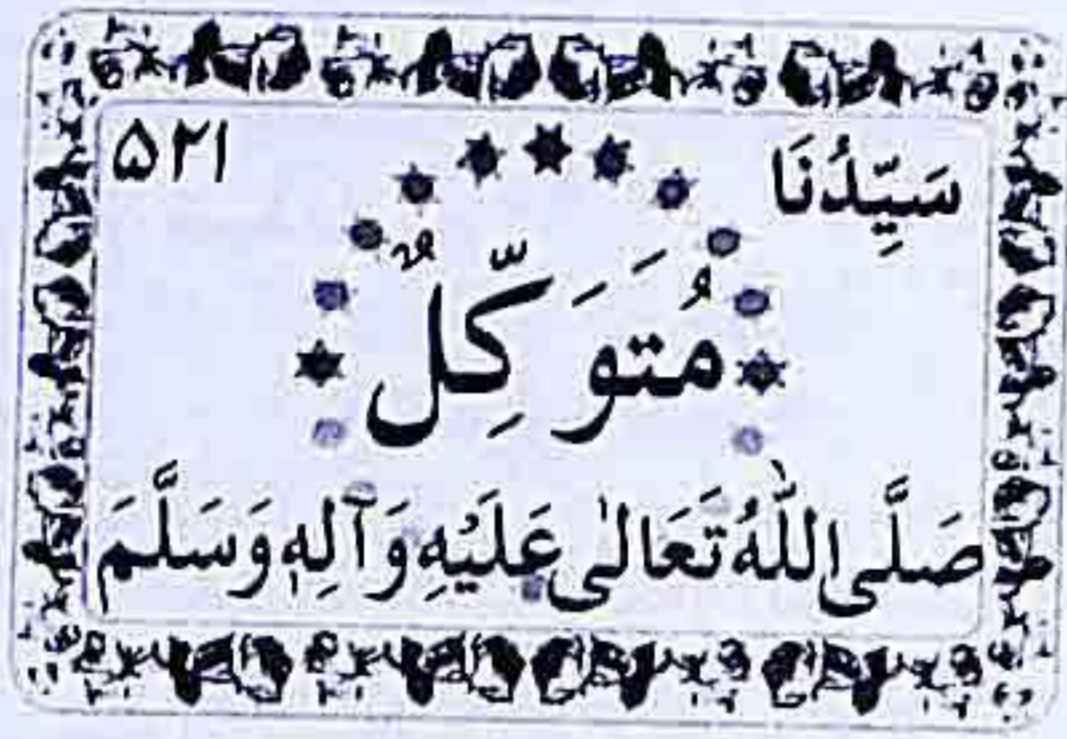 سَيِّدُنَا ۵۲۱
مُتَوَكِّلٌ
صَلَّی اللّٰهُ تَعَالٰی عَلَيْهِ وَآلِهٖ وَسَلَّمَ